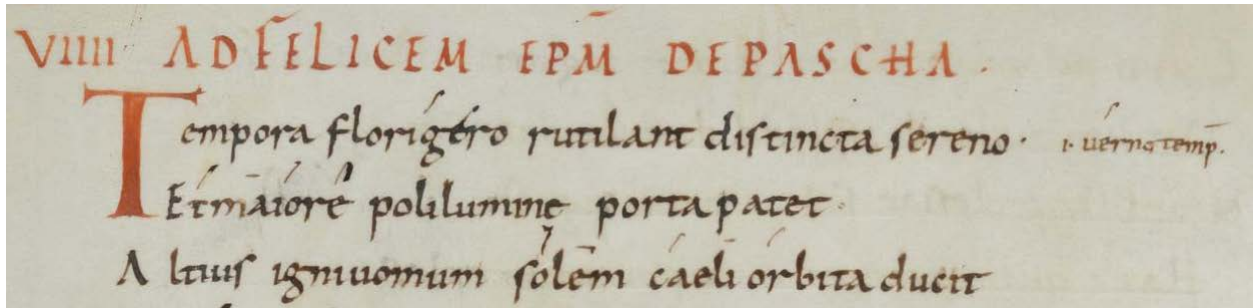 VIIII AD FELICEM EPM̄ DE PASCHA ·
Tempora florigéro rutilant distincta sereno · i· uérno temp̄.
Et maiore poli lumine porta patet ·
Altius igniuomum sólem cáeli órbita ducit